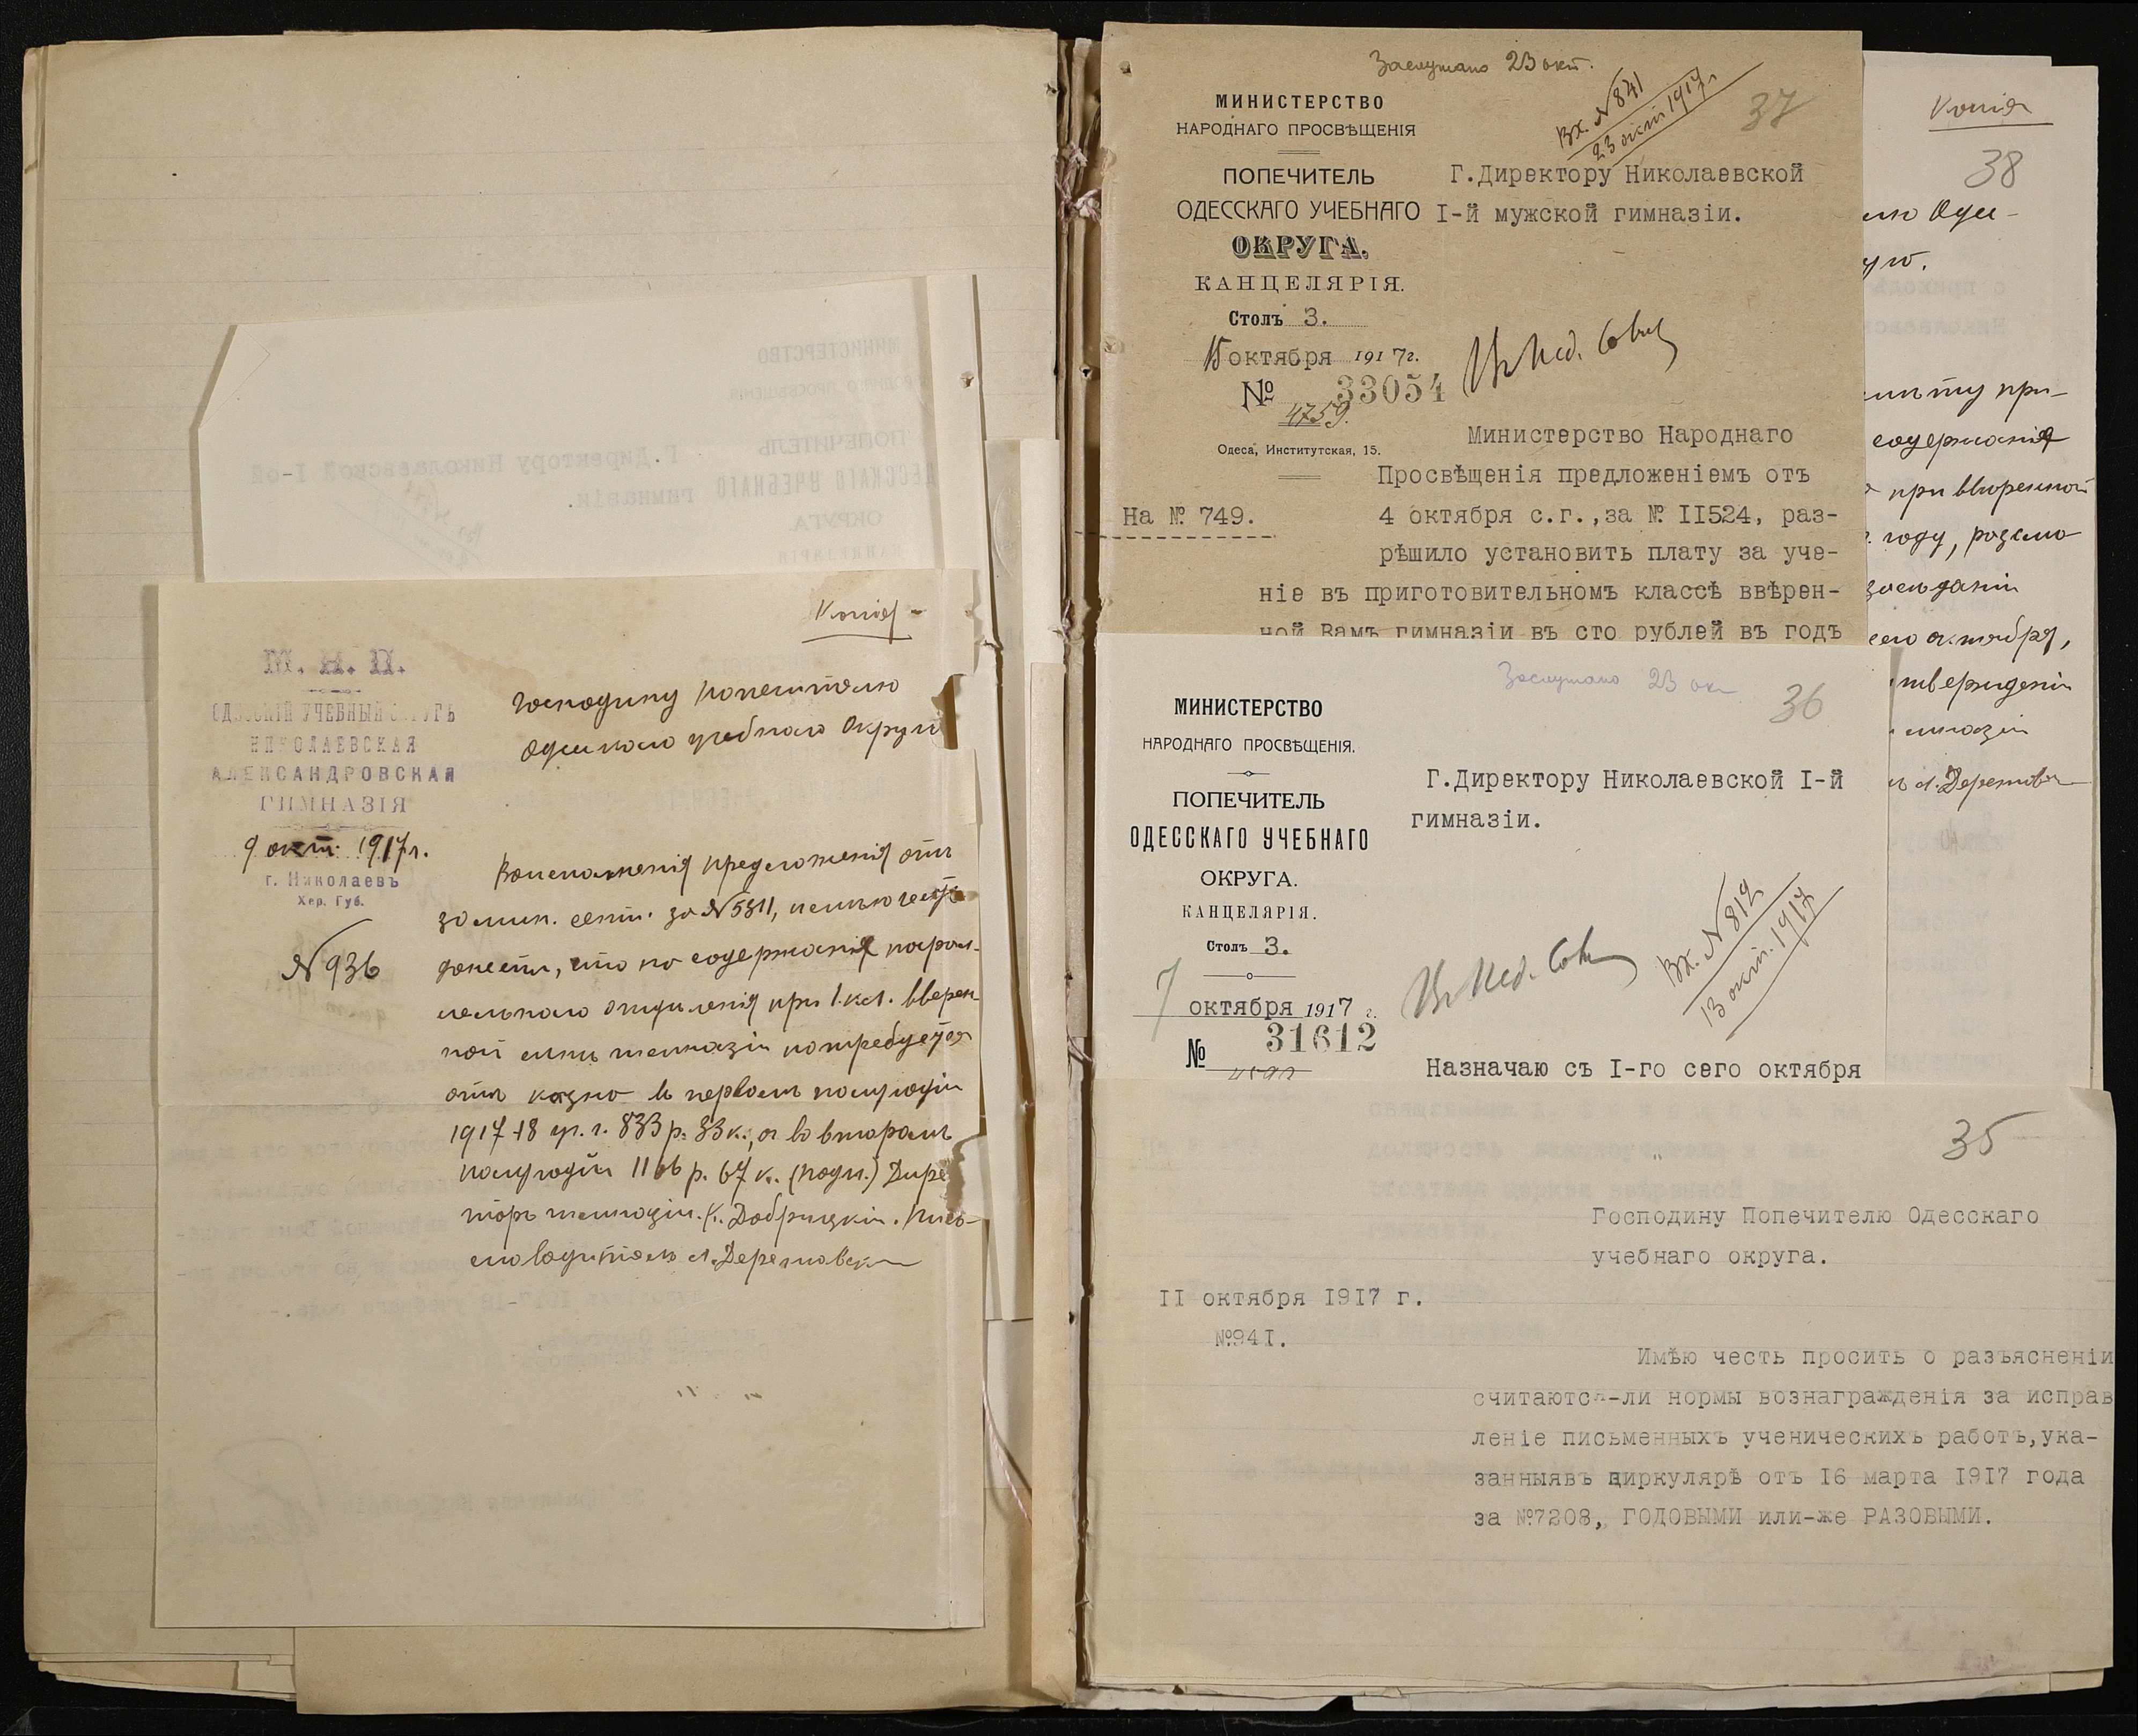 Копія
М. Н. П.
ОДЕССКІЙ УЧЕБНЫЙ ОКРУГЪ
НИКОЛАЕВСКАЯ
АЛЕКСАНДРОВСКАЯ
ГИМНАЗІЯ
9 окт. 1917 г.
г. Николаевъ
Хер. Губ.
№ 936
Господину Попечителю
Одесскаго учебнаго Округа
Во исполненіе предложенія отъ
30 мин. сент. за № 5811, имѣю честь
донести, что на содержаніе парал-
лельнаго отдѣленія при 1 кл. ввѣрен
ной мнѣ гимназіи потребуется
отъ казны въ первомъ полугодіи
1917-18 уч. г. 833 р. 33 к., а во второмъ
полугодіи 1166 р. 67 к. (подп.) Дире
торъ гимназіи К. Добрицкій. Пись-
моводитель
Заслушано 23 окт.
Вх. № 841
23 окт 1917 г
37
МИНИСТЕРСТВО
НАРОДНАГО ПРОСВѢЩЕНІЯ
ПОПЕЧИТЕЛЬ
ОДЕССКАГО УЧЕБНАГО
ОКРУГА.
КАНЦЕЛЯРІЯ.
Столъ 3.
15 октября 1917 г.
№ 33054
4759.
Одеса, Институтская, 15.
На № 749.
Г.Директору Николаевской
I-й мужской гимназіи.
Въ Пед. Совѣ
Министерство Народнаго
Просвѣщенія предложеніемъ отъ
4 октября с.г.,за № II524, раз-
рѣшило установить плату за уче-
ніе въ приготовительномъ классѣ ввѣрен-
ной Вамъ гимназіи въ сто рублей въ годъ
Копія
38
лю Одес-
при-
содержанія
при ввѣренной
году, разсмо
засѣданіи
сего октября,
утвержденіи
имназіи
Заслушано 23 ок
36
МИНИСТЕРСТВО
НАРОДНАГО ПРОСВѢЩЕНІЯ.
ПОПЕЧИТЕЛЬ
ОДЕССКАГО УЧЕБНАГО
ОКРУГА.
КАНЦЕЛЯРІЯ.
Столъ 3.
7 октября 1917 г.
№ 31612
Г.Директору Николаевской I-й
гимназіи.
Въ Пед. Сов
Вх. № 812
13 окт. 1917
Назначаю съ I-го сего октября
35
Господину Попечителю Одесскаго
учебнаго округа.
II октября I9I7 г.
№94I.
Имѣю честь просить о разъясненіи
считаются-ли нормы вознагражденія за исправ
леніе письменныхъ ученическихъ работъ,ука-
занныявъ циркулярѣ отъ I6 марта I9I7 года
за №7208, ГОДОВЫМИ или-же РАЗОВЫМИ.